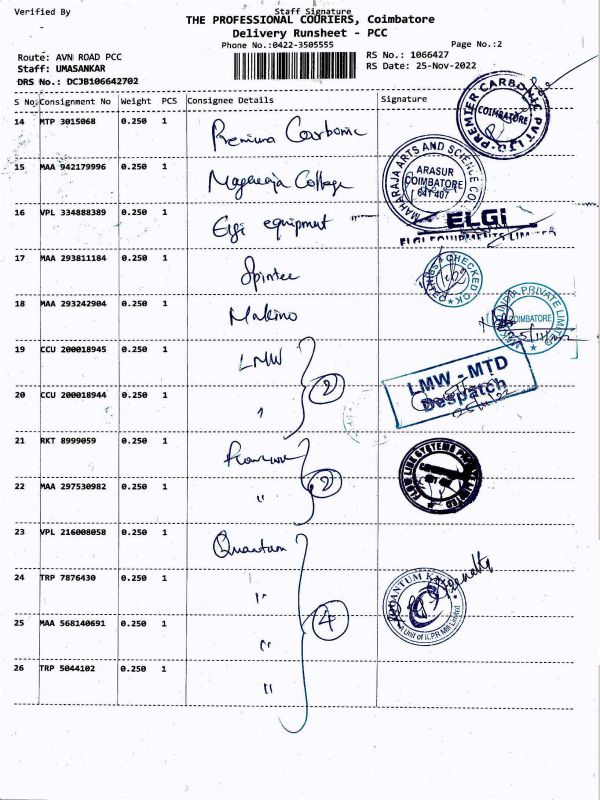 Verified By Staff Signature
THE PROFESSIONAL COURIERS, Coimbatore
Delivery Runsheet - PCC
Phone No.:0422-3505555 Page No.:2
Route: AVN ROAD PCC RS No.: 1066427
Staff: UMASANKAR RS Date: 25-Nov-2022
DRS No.: DCJB106642702
S No Consignment No Weight PCS Consignee Details Signature
14 MTP 3015068 0.250 1 Premium Carbonic
PREMIER CARBONIC PVT LTD COIMBATORE
15 MAA 942179996 0.250 1 Maharaja College
MAHARAJA ARTS AND SCIENCE
ARASUR
COIMBATORE
641 407
16 VPL 334888389 0.250 1 Elgi equipment
ELGi
ELGI EQUIPMENTS LIMITED
17 MAA 293811184 0.250 1 Spintec
CHECKED OK
18 MAA 293242904 0.250 1 Makino
INDIA PRIVATE LIMITED
COIMBATORE
19 CCU 200018945 0.250 1 LMW
20 CCU 200018944 0.250 1 " 2
LMW - MTD
Despatch
21 RKT 8999059 0.250 1
FLOW LINK SYSTEMS PRIVATE LIMITED
22 MAA 297530982 0.250 1 " 2
23 VPL 216008058 0.250 1 Quantum
24 TRP 7876430 0.250 1 "
QUANTUM KNITS
A Unit of K.P.R Mill Limited
25 MAA 568140691 0.250 1 " 4
26 TRP 5044102 0.250 1 "